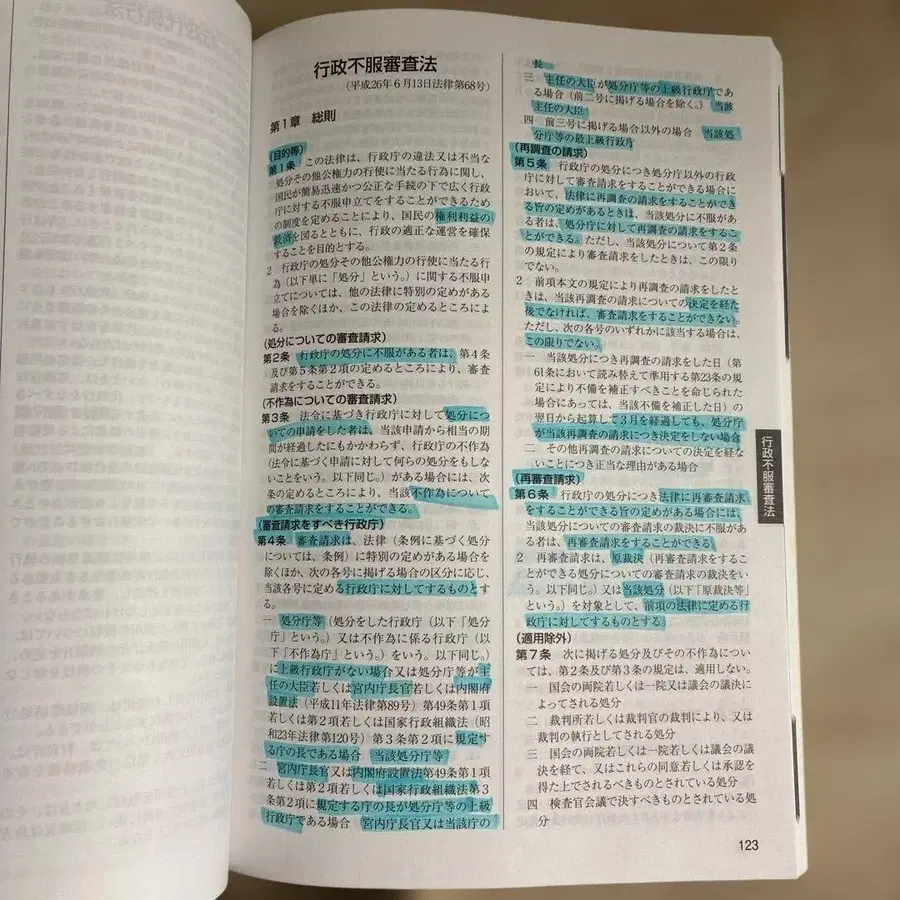 行政不服審査法
(平成26年6月13日法律第68号)
第1章 総則
(目的等)
第1条 この法律は、行政庁の違法又は不当な
処分その他公権力の行使に当たる行為に関し、
国民が簡易迅速かつ公正な手続の下で広く行政
庁に対する不服申立てをすることができるため
の制度を定めることにより、国民の権利利益の
救済を図るとともに、行政の適正な運営を確保
することを目的とする。
2 行政庁の処分その他公権力の行使に当たる行
為(以下単に「処分」という。)に関する不服申
立てについては、他の法律に特別の定めがある
場合を除くほか、この法律の定めるところによ
る。
(処分についての審査請求)
第2条 行政庁の処分に不服がある者は、第4条
及び第5条第2項の定めるところにより、審査
請求をすることができる。
(不作為についての審査請求)
第3条 法令に基づき行政庁に対して処分につ
いての申請をした者は、当該申請から相当の期
間が経過したにもかかわらず、行政庁の不作為
(法令に基づく申請に対して何らの処分をもしな
いことをいう。以下同じ。)がある場合には、次
条の定めるところにより、当該不作為について
の審査請求をすることができる。
(審査請求をすべき行政庁)
第4条 審査請求は、法律(条例に基づく処分
については、条例)に特別の定めがある場合を
除くほか、次の各号に掲げる場合の区分に応じ、
当該各号に定める行政庁に対してするものとす
る。
一 処分庁等(処分をした行政庁(以下「処分
庁」という。)又は不作為に係る行政庁(以
下「不作為庁」という。)をいう。以下同じ。)
に上級行政庁がない場合又は処分庁等が主
任の大臣若しくは宮内庁長官若しくは内閣府
設置法(平成11年法律第89号)第49条第1項
若しくは第2項若しくは国家行政組織法(昭
和23年法律第120号)第3条第2項に規定す
る庁の長である場合 当該処分庁等
二 宮内庁長官又は内閣府設置法第49条第1項
若しくは第2項若しくは国家行政組織法第3
条第2項に規定する庁の長が処分庁等の上級
行政庁である場合 宮内庁長官又は当該庁の
長
三 主任の大臣が処分庁等の上級行政庁であ
る場合(前二号に掲げる場合を除く。) 当該
主任の大臣
四 前三号に掲げる場合以外の場合 当該処
分庁等の最上級行政庁
(再調査の請求)
第5条 行政庁の処分につき処分庁以外の行政
庁に対して審査請求をすることができる場合に
おいて、法律に再調査の請求をすることができ
る旨の定めがあるときは、当該処分に不服があ
る者は、処分庁に対して再調査の請求をするこ
とができる。ただし、当該処分について第2条
の規定により審査請求をしたときは、この限り
でない。
2 前項本文の規定により再調査の請求をしたと
きは、当該再調査の請求についての決定を経た
後でなければ、審査請求をすることができない。
ただし、次の各号のいずれかに該当する場合は、
この限りでない。
一 当該処分につき再調査の請求をした日(第
61条において読み替えて準用する第23条の規
定により不備を補正すべきことを命じられた
場合にあっては、当該不備を補正した日)の
翌日から起算して3月を経過しても、処分庁
が当該再調査の請求につき決定をしない場合
二 その他再調査の請求についての決定を経な
いことにつき正当な理由がある場合
(再審査請求)
第6条 行政庁の処分につき法律に再審査請求
をすることができる旨の定めがある場合には、
当該処分についての審査請求の裁決に不服があ
る者は、再審査請求をすることができる。
2 再審査請求は、原裁決(再審査請求をするこ
とができる処分についての審査請求の裁決をい
う。以下同じ。)又は当該処分(以下「原裁決等」
という。)を対象として、前項の法律に定める行
政庁に対してするものとする。
(適用除外)
第7条 次に掲げる処分及びその不作為につい
ては、第2条及び第3条の規定は、適用しない。
一 国会の両院若しくは一院又は議会の議決に
よってされる処分
二 裁判所若しくは裁判官の裁判により、又は
裁判の執行としてされる処分
三 国会の両院若しくは一院若しくは議会の議
決を経て、又はこれらの同意若しくは承認を
得た上でされるべきものとされている処分
四 検査官会議で決すべきものとされている処
分
行政不服審査法
123